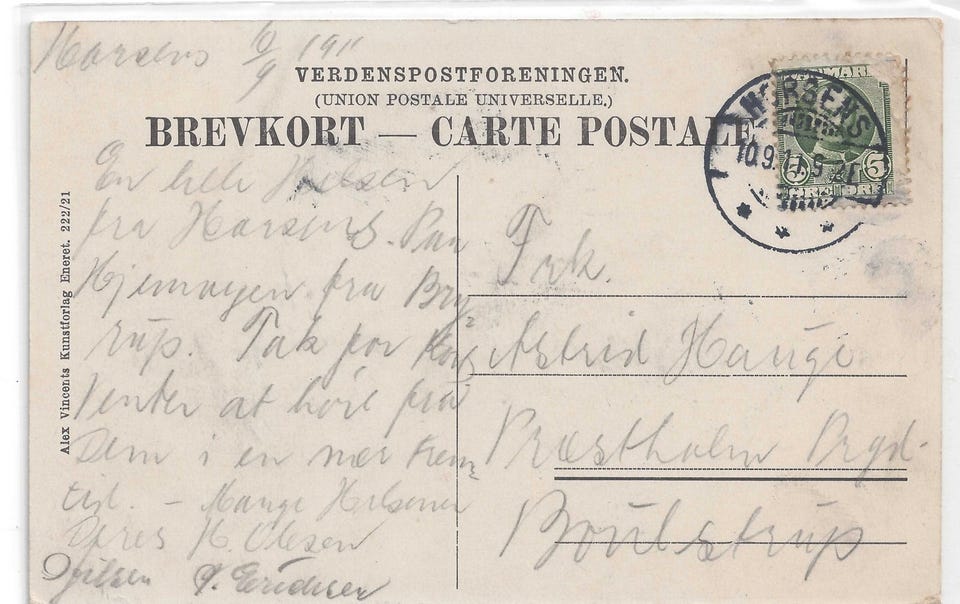 Horsens 10/9 1911
VERDENSPOSTFORENINGEN.
(UNION POSTALE UNIVERSELLE.)
BREVKORT — CARTE POSTALE
HORSENS
10.9.11.
5 ØRE
Alex Vincents Kunstforlag Eneret. 222/21
En lille Hilsen
fra Horsens. Paa
Hjemvejen fra Bry-
rup. Tak for Kort
Venter at høre fra
Dem i en nær Frem-
tid. — Mange Hilsener
Deres H. Olesen
Frk.
Astrid Hauge
Præstholm